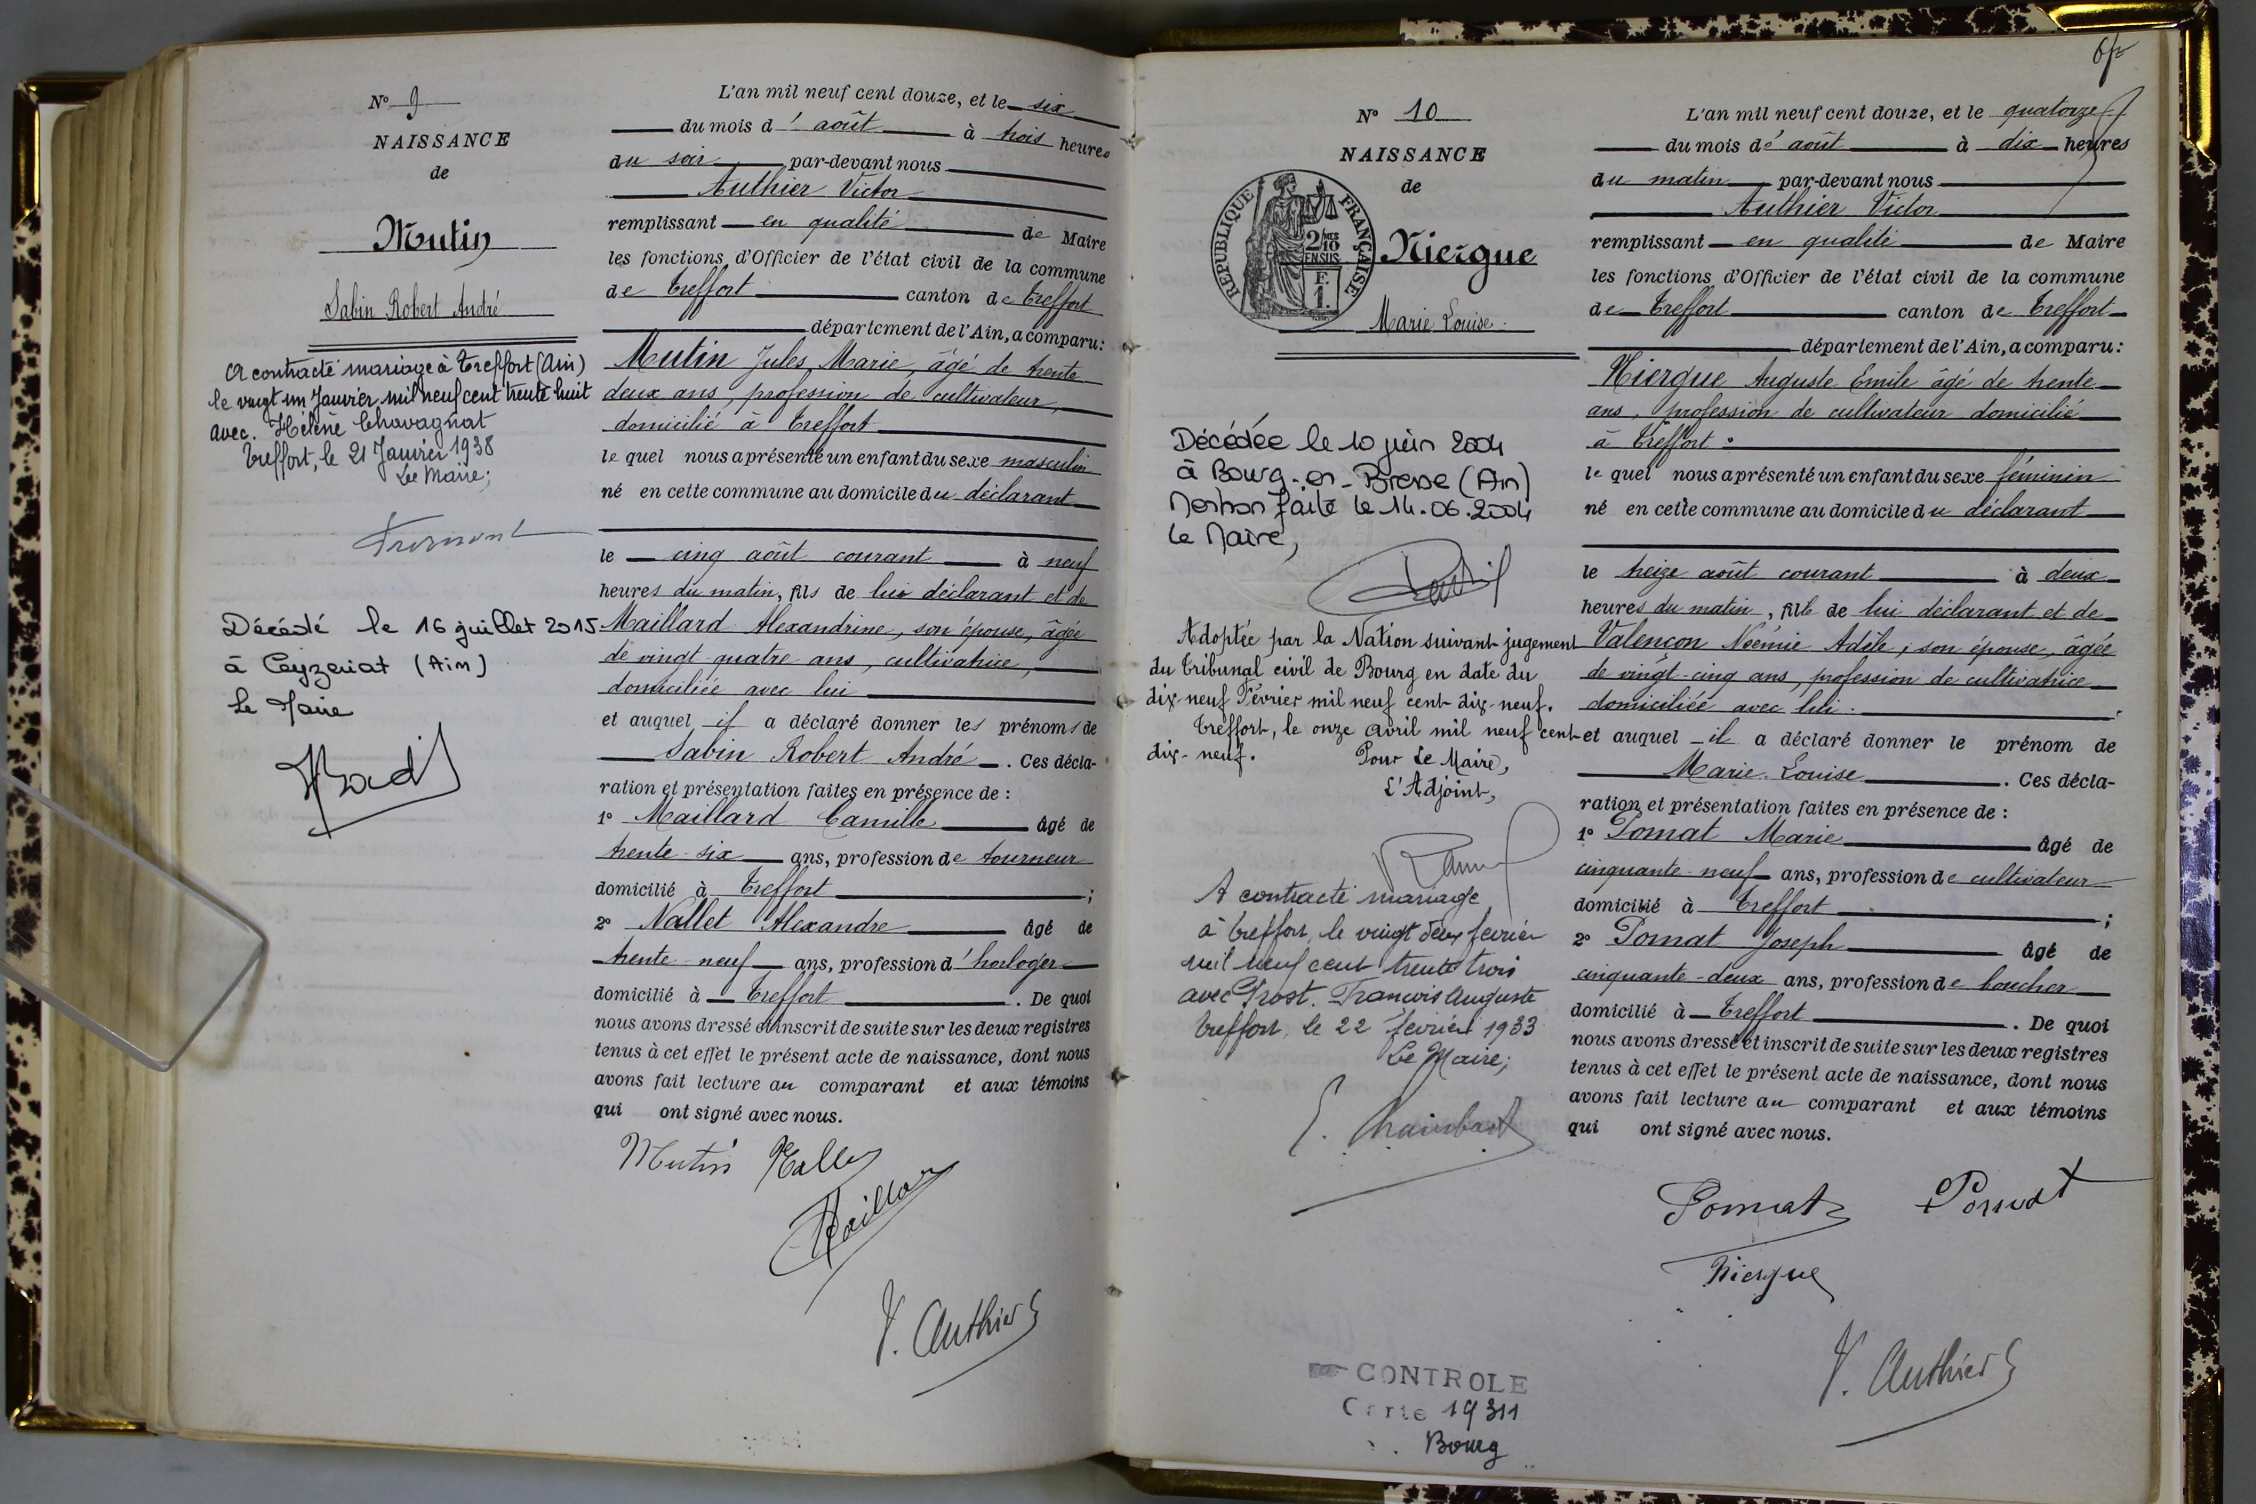 N° 9
NAISSANCE
de
Mutin
Sabin Robert André
A contracté mariage à Treffort (Ain)
le vingt un Janvier mil neuf cent trente huit
avec. Hélène Chavagnat
Treffort, le 21 Janvier 1938
Le Maire;
Décédé le 16 juillet 2015
à Ceyzeriat (Ain)
Le Maire
L'an mil neuf cent douze, et le six
du mois d'août à trois heures
du soir par-devant nous
Authier Victor
remplissant en qualité de Maire
les fonctions d'Officier de l'état civil de la commune
de Treffort canton de Treffort
département de l'Ain, a comparu:
Mutin Jules Marie, âgé de trente
deux ans, profession de cultivateur,
domicilié à Treffort
le quel nous a présenté un enfant du sexe masculin
né en cette commune au domicile du déclarant
le cinq août courant à neuf
heures du matin, fils de lui déclarant et de
Maillard Alexandrine, son épouse, âgée
de vingt quatre ans, cultivatrice,
domiciliée avec lui
et auquel il a déclaré donner les prénoms de
Sabin Robert André. Ces décla-
ration et présentation faites en présence de :
1° Maillard Camille âgé de
trente-six ans, profession de tourneur
domicilié à Treffort ;
2° Nallet Alexandre âgé de
trente-neuf ans, profession d'horloger
domicilié à Treffort . De quoi
nous avons dressé et inscrit de suite sur les deux registres
tenus à cet effet le présent acte de naissance, dont nous
avons fait lecture au comparant et aux témoins
qui ont signé avec nous.
Mutin Nallet
Maillard
V. Authier
N° 10
NAISSANCE
de
RÉPUBLIQUE FRANÇAISE
2/10
EN SUS
F.
1.
Niergue
Marie Louise.
Décédée le 10 juin 2004
à Bourg-en-Bresse (Ain)
Mention faite le 14.06.2004
Le Maire,
Adoptée par la Nation suivant jugement
du Tribunal civil de Bourg en date du
dix-neuf Février mil neuf cent dix-neuf.
Treffort, le onze avril mil neuf cent
dix-neuf. Pour Le Maire,
L'Adjoint,
A contracté mariage
à Treffort, le vingt deux février
mil neuf cent trente trois
avec Prost. François Auguste
Treffort, le 22 février 1933
Le Maire;
CONTROLE
Carte 19311
Bourg
L'an mil neuf cent douze, et le quatorze
du mois d'août à dix heures
du matin par-devant nous
Authier Victor
remplissant en qualité de Maire
les fonctions d'Officier de l'état civil de la commune
de Treffort canton de Treffort
département de l'Ain, a comparu:
Niergue Auguste Emile âgé de trente
ans, profession de cultivateur domicilié
à Treffort.
le quel nous a présenté un enfant du sexe féminin
né en cette commune au domicile du déclarant
le treize août courant à deux
heures du matin, fille de lui déclarant et de
Valençon Noémie Adèle, son épouse, âgée
de vingt-cinq ans, profession de cultivatrice
domiciliée avec lui.
et auquel il a déclaré donner le prénom de
Marie Louise . Ces décla-
ration et présentation faites en présence de :
1° Pomat Marie âgé de
cinquante-neuf ans, profession de cultivateur
domicilié à Treffort ;
2° Pomat Joseph âgé de
cinquante-deux ans, profession de boucher
domicilié à Treffort . De quoi
nous avons dressé et inscrit de suite sur les deux registres
tenus à cet effet le présent acte de naissance, dont nous
avons fait lecture au comparant et aux témoins
qui ont signé avec nous.
Pomat Pomat
Niergue
V. Authier